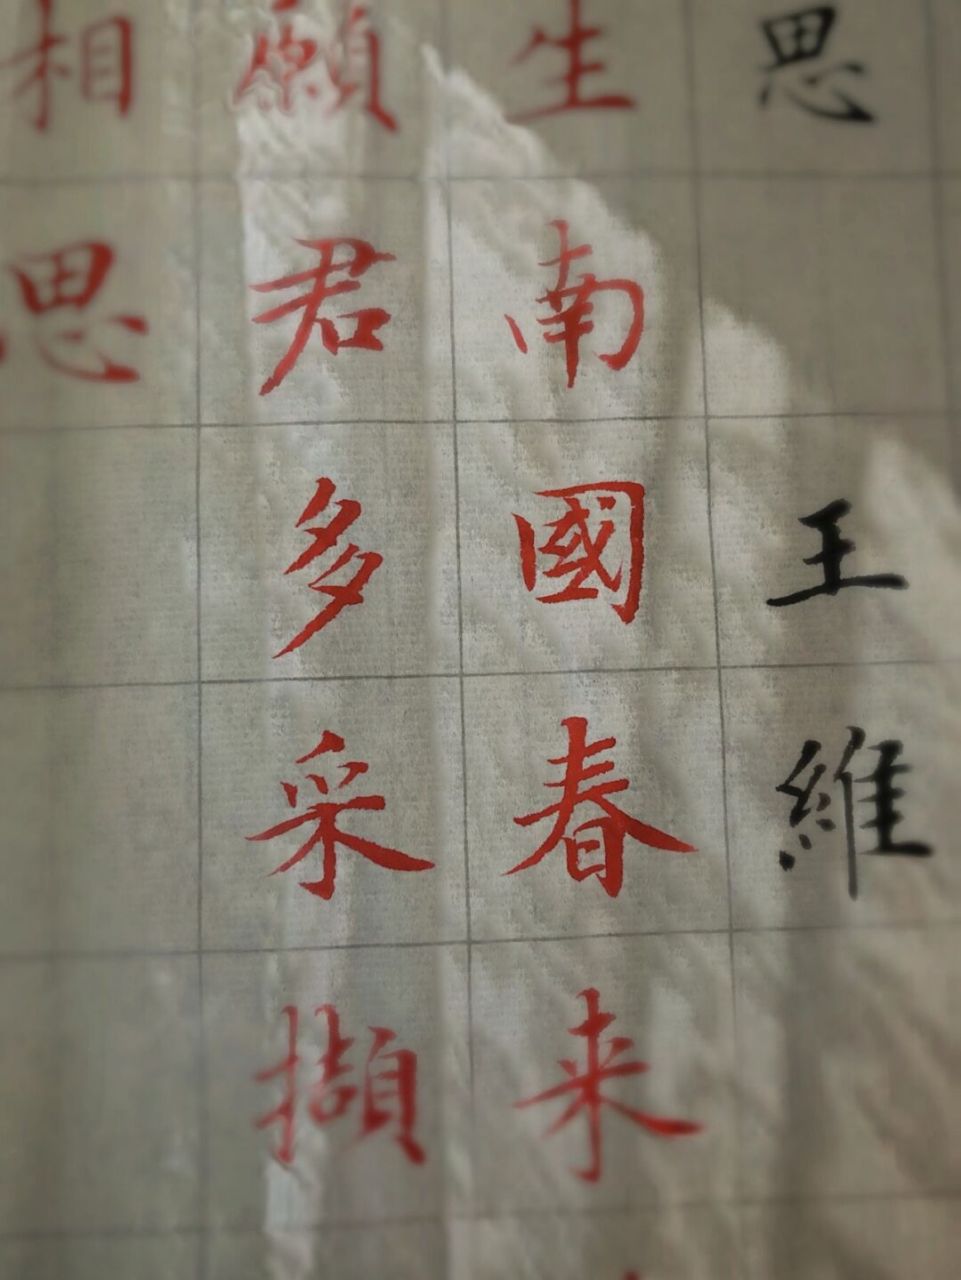 思王維
生南國春来
願君多采擷
相思